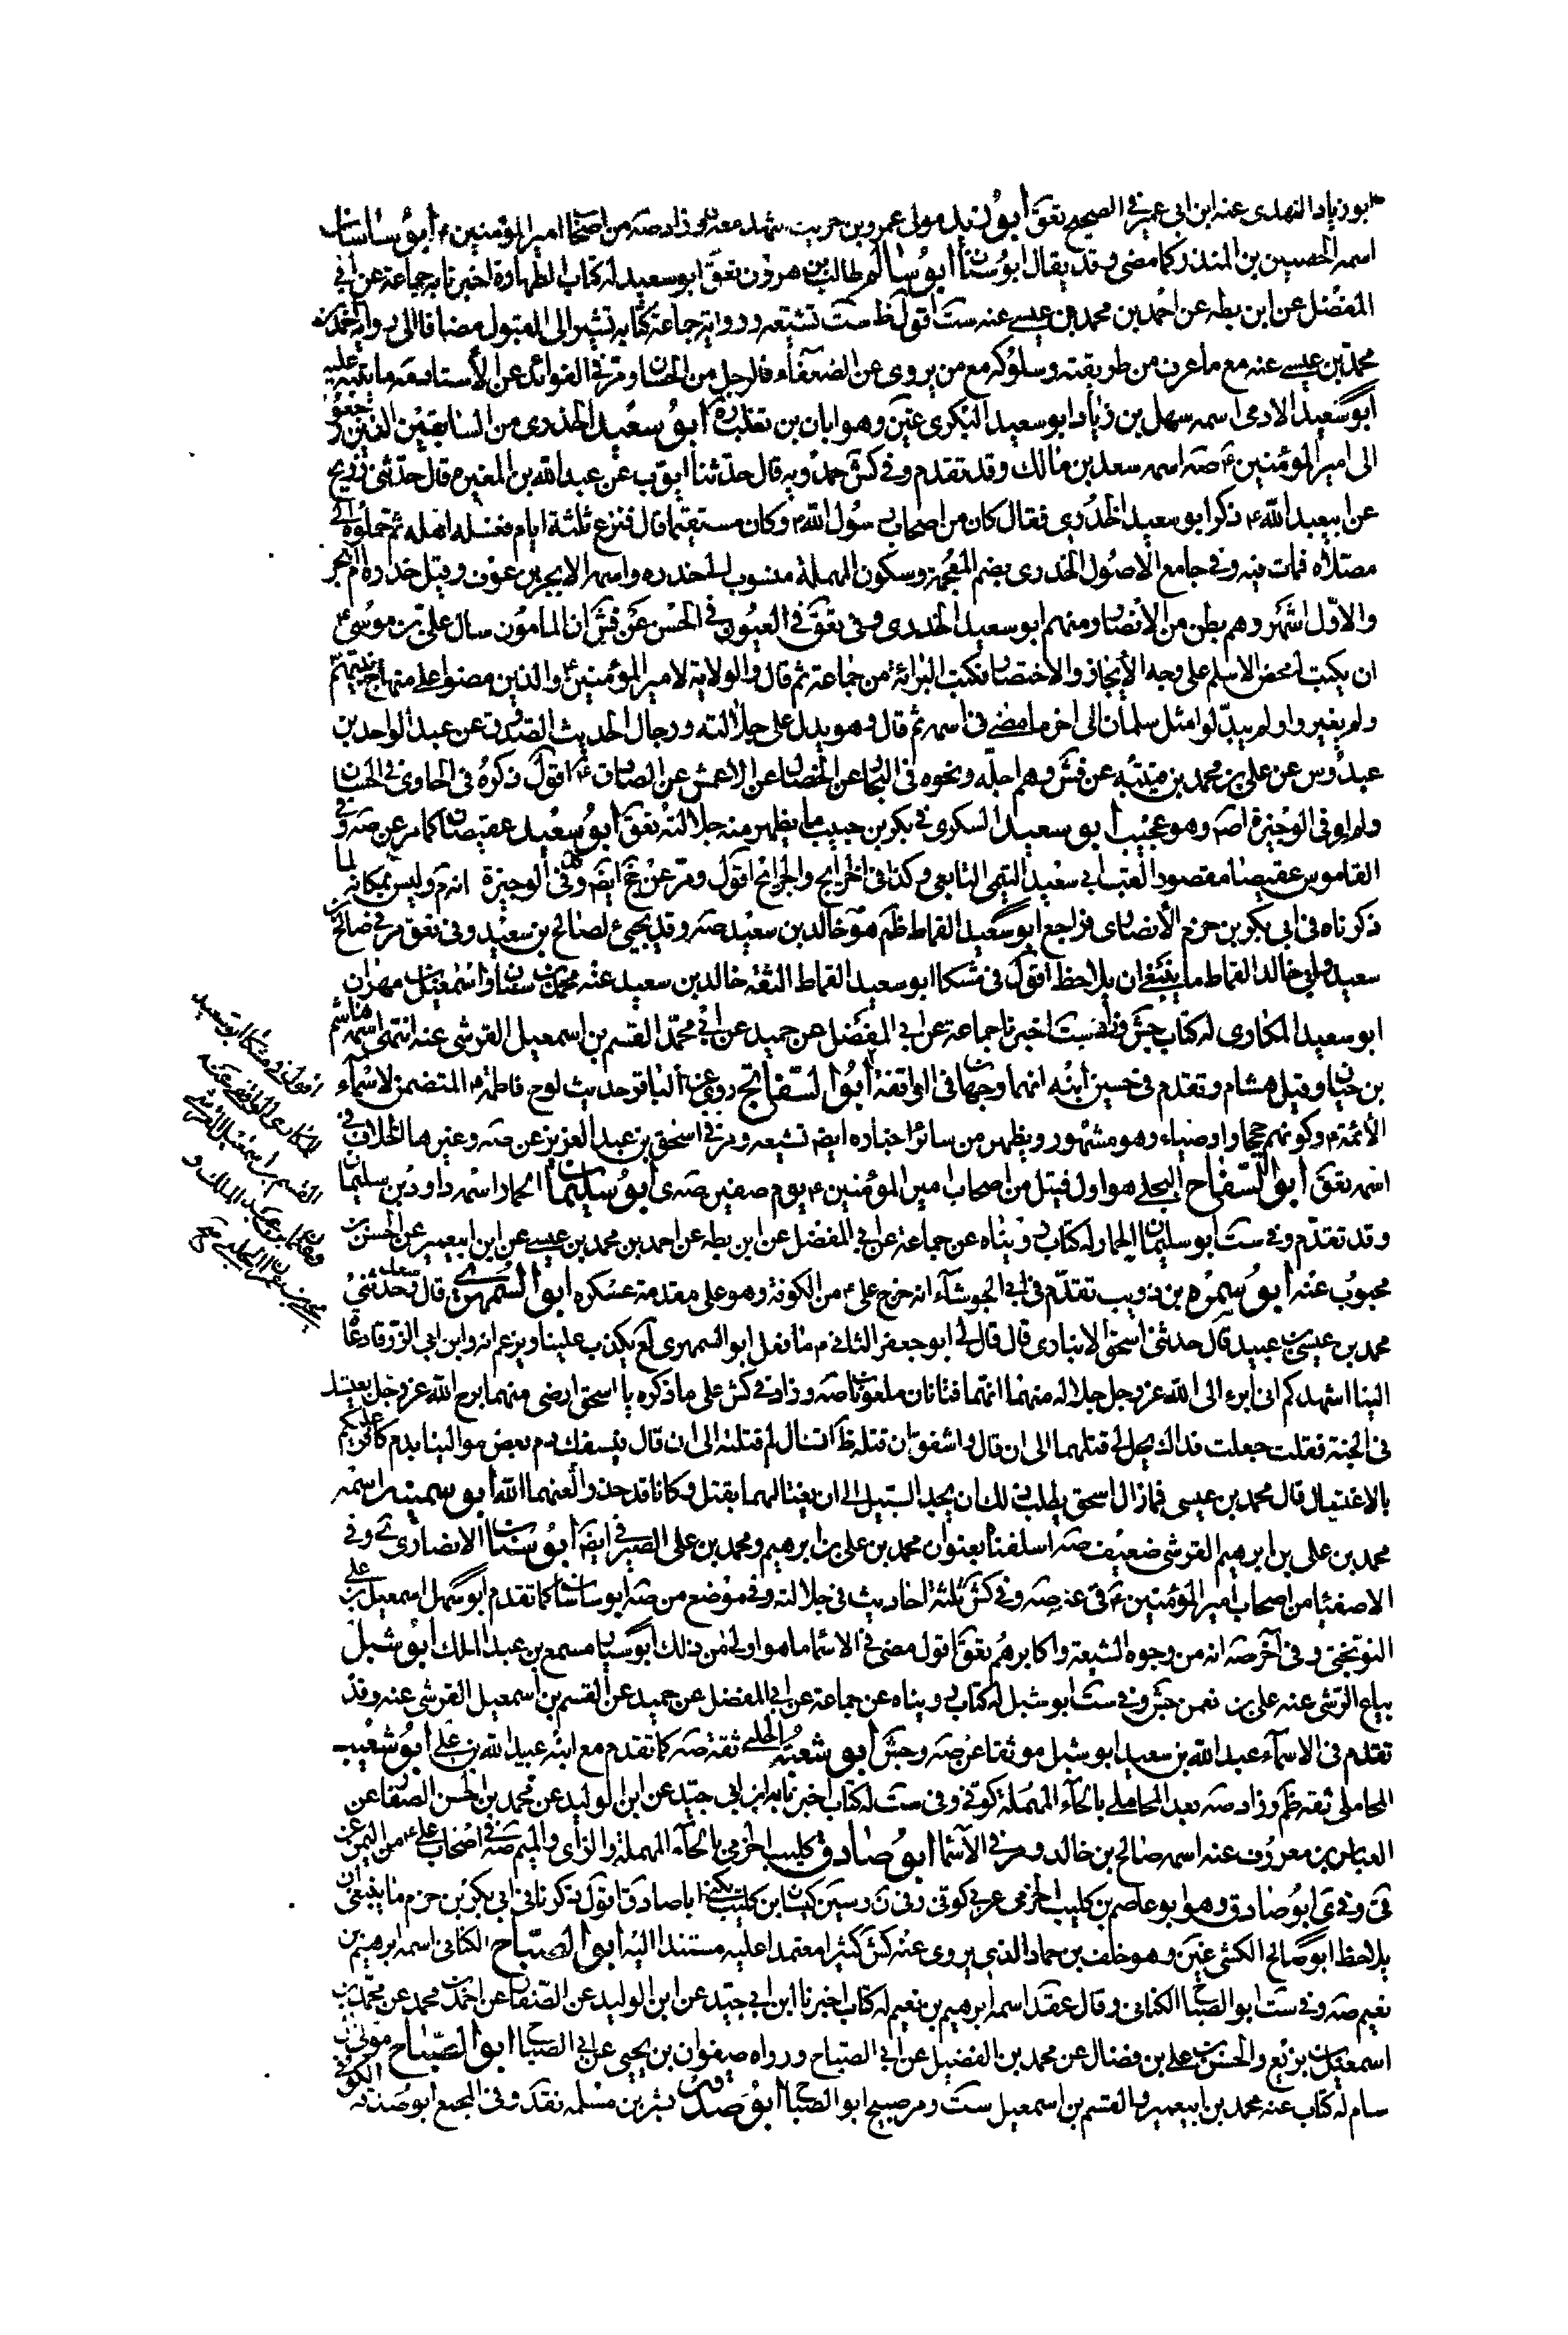 ابو زياد النهدى عنه ابن ابى عمير فى الصحيح تعق ابو زيد مولى عمرو بن حريث شهد معه و زاد صه من اصحاب امير المؤمنين ع ابو ساسان
اسمه الحصين بن المنذر كما مضى وقد يقال ابو سنان ابو سالم طالب بن هرون تعق ابو سعيد له كتاب الطهارة اخبرنا به جماعة عن ابى
المفضل عن ابن بطه عن احمد بن محمد بن عيسى عنه ست اقول ظ ست تشيعه ورواية جماعة كتابه تشير الى القبول مضافا الى رواية احمد بن
محمد بن عيسى عنه مع ما عرف من طريقته وسلوكه مع من يروى عن الضعفاء فالرجل من الحسان ومر فى الفوائد عن الأستاد مد ظله ما ينبه عليه
ابو سعيد الادمى اسمه سهل بن زياد ابو سعيد البكرى عين وهو ابان بن تغلب ابو سعيد الخدرى من السابقين الذين رجعوا
الى امير المؤمنين ع صه اسمه سعد بن مالك وقد تقدم وفى كش حمدويه قال حدثنا ايوب عن عبد الله بن المغيرة قال حدثنى ذريح
عن ابيعبد الله ع ذكر ابو سعيد الخدرى فقال كان من اصحاب رسول الله ص وكان مستقيما قال فنزع ثلثة ايام فغسله اهله ثم حملوه الى
مصلاه فمات فيه وفى جامع الاصول الخدرى بضم المعجمة وسكون المهملة منسوب الى خدره واسمه الابجر بن عوف وقيل خدارة ام ابجر
والاول اشهر وهم بطن من الانصار ومنهم ابو سعيد الخدرى وفى تعق فى العيون فى الحسن عن فش ان المامون سال على بن موسى ع
ان يكتب له محض الاسلم على وجه الأيجاز والاختصار فكتب البرائة من جماعة ثم قال والولاية لامير المؤمنين ع والذين مضوا على منهاج نبيهم
ولم يغيروا ولم يبدلوا مثل سلمان الى اخر ما مضى فى اسمه ثم قال وهو يدل على جلالته ورجال الحديث الصدوق عن عبد الواحد بن
عبدوس عن على بن محمد بن قتيبه عن فش وهم اجله ونحوه فى البحار عن الخصال عن الاعمش عن الصادق ع اقول ذكره فى الحاوى فى الحسان
ولم ار فى الوجيزة اصه وهو عجيب ابو سعيد السكرى فى بكر بن حبيب ما يظهر منه جلالته تعق ابو سعيد عقيصان كما مر عن صه وفى
القاموس عقيصا مقصور لقب ابى سعيد التيمى التابعى وكذا فى الخرايج والجرائح اقول ومر عن جخ ايضه وفى الوجيزة انه م وليس بمكانه لما
ذكرناه فى ابى بكر بن حزم الأنصارى فراجع ابو سعيد القماط ظم هو خالد بن سعيد صه وقد يجيئ لصالح بن سعيد وفى تعق مر فى صالح بن
سعيد وابى خالد القماط ما ينبغى ان يلاحظ اقول فى مشكا ابو سعيد القماط الثقه خالد بن سعيد عنه محمد بن سنان واسمعيل بن مهران
ابو سعيد المكارى له كتاب جش وفى ست اخبرنا جماعة عن ابى المفضل عن حميد عن ابى محمد القسم بن اسمعيل القرشى عنه انتهى اسمه هاشم
بن حيان وقيل هشام وتقدم فى حسين ابنه انهما وجها فى الواقفة ابو السفاتج روى عن الباقر حديث لوح فاطمة ع المتضمن لاسماء
الأئمة ع وكونهم حججا واوصياء وهو مشهور ويظهر من سائر اخباره ايضه تشيعه ومر فى اسحق بن عبد العزيز عن صه وغيرها الخلاف فى
اسمه تعق ابو السفاح البجلى هو اول قتيل من اصحاب امير المؤمنين ع يوم صفين صه ى ابو سليمان الحمار اسمه داود بن سليمان
وقد تقدم وفى ست ابو سليمان الحمار له كتاب رويناه عن جماعة عن ابى المفضل عن ابن بطه عن احمد بن محمد بن عيسى عن ابن ابيعمير عن الحسن بن
محبوب عنه ابو سمره بن ذويب تقدم فى ابى الجوشاء انه خرج على ع من الكوفة وهو على مقدمة عسكره ابو السمهرى قال سعد حدثنى
محمد بن عيسى بن عبيد قال حدثنى اسحق الانبارى قال قال لى ابو جعفر الثانى ع ما فعل ابو السمهرى لع يكذب علينا ويزعم انه وابن ابى الزرقا دعاة
الينا اشهدكم انى ابرء الى الله عز وجل جلاله منهما انهما فتانان ملعونان صه وزاد فى كش على ما ذكره يا اسحق ارضى منهما يرح الله عز وجل بعيشك
فى الجنة فقلت جعلت فداك يحل لى قتلهما الى ان قال واشفق ان قتله ظا تسال لم قتلته الى ان قال فيسفك دم بعض موالينا بدم كافر عليكم
بالاغتيال قال محمد بن عيسى فما زال اسحق يطلب ذلك ان يجد السبيل الى ان يغتالهما بقتل وكانا قد حذراه لعنهما الله ابو سمينه اسمه
محمد بن على بن ابرهيم القرشى ضعيف صه اسلفنا بعنوان محمد بن على بن ابرهيم ومحمد بن على الصيرفى ايضه ابو سنان الانصارى ى وفى
الاصفيا من اصحاب امير المؤمنين ع قى عنه صه وفى كش ثلثة احاديث فى جلالته وفى موضع من صه ابو ساسان كما تقدم ابو سهل اسمعيل بن على
النوبختى وفى اخر صه انه من وجوه الشيعة واكابرهم تعق اقول مضى فى الاسماء ما هو اولى من ذلك ابو سيار مسمع بن عبد الملك ابو شبل
بياع الوشى عنه على بن نعمن جش وفى ست ابو شبل له كتاب رويناه عن جماعة عن ابى المفضل عن حميد عن القسم بن اسمعيل القرشى عنه وقد
تقدم فى الاسماء عبد الله بن سعيد ابو شبل موثقا عن صه وجش ابو شعبة الحلبى ثقة صه كما تقدم مع ابنه عبيد الله بن على ابو شعيب
المحاملى ثقه ظم وزاد صه بعد المحاملى بالحاء المهملة كوفى وفى ست له كتاب اخبرنا به ابن ابى جيد عن ابن الوليد عن محمد بن الحسن الصفار عن
العباس بن معروف عنه اسمه صالح بن خالد ومر فى الاسما ابو صادق كليب الجرمى بالحاء المهملة والزاى والميم صه فى اصحاب على ع من اليمن عن
قى وفى ى ابو صادق وهو ابو عاصم بن كليب الجرمى عربى كوفى وفى ن وسين كيسان بن كليب يكنى ابا صادق اقول ذكرنا فى ابى بكر بن حزم ما ينبغى ان
يلاحظ ابو صالح الكشى عين وهو خلف بن حماد الذى يروى عنه كش كثيرا معتمدا عليه مستندا اليه ابو الصباح الكنانى اسمه ابرهيم بن
نعيم صه وفى ست ابو الصباح الكنانى وقال عقد اسمه ابرهيم بن نعيم له كتاب اخبرنا ابن ابى جيد عن ابن الوليد عن الصفار عن احمد بن محمد عن محمد بن
اسمعيل بن بزيع والحسن بن على بن فضال عن محمد بن الفضيل عن ابى الصباح ورواه صفوان بن يحيى عن ابى الصباح ابو الصباح مولى بن
سام له كتاب عنه محمد بن ابيعمير والقسم بن اسمعيل ست ومر صبيح ابو الصباح ابو صدقه بشر بن مسلمه نقد وفى المجمع ابو صدقه الكوفى
اقول فى مشكا ابو سعيد
المكارى الواقفى عنه
القسم بن اسمعيل القرشى
وعثمان بن عبد الملك و
يحيى بن عمران الحلبى